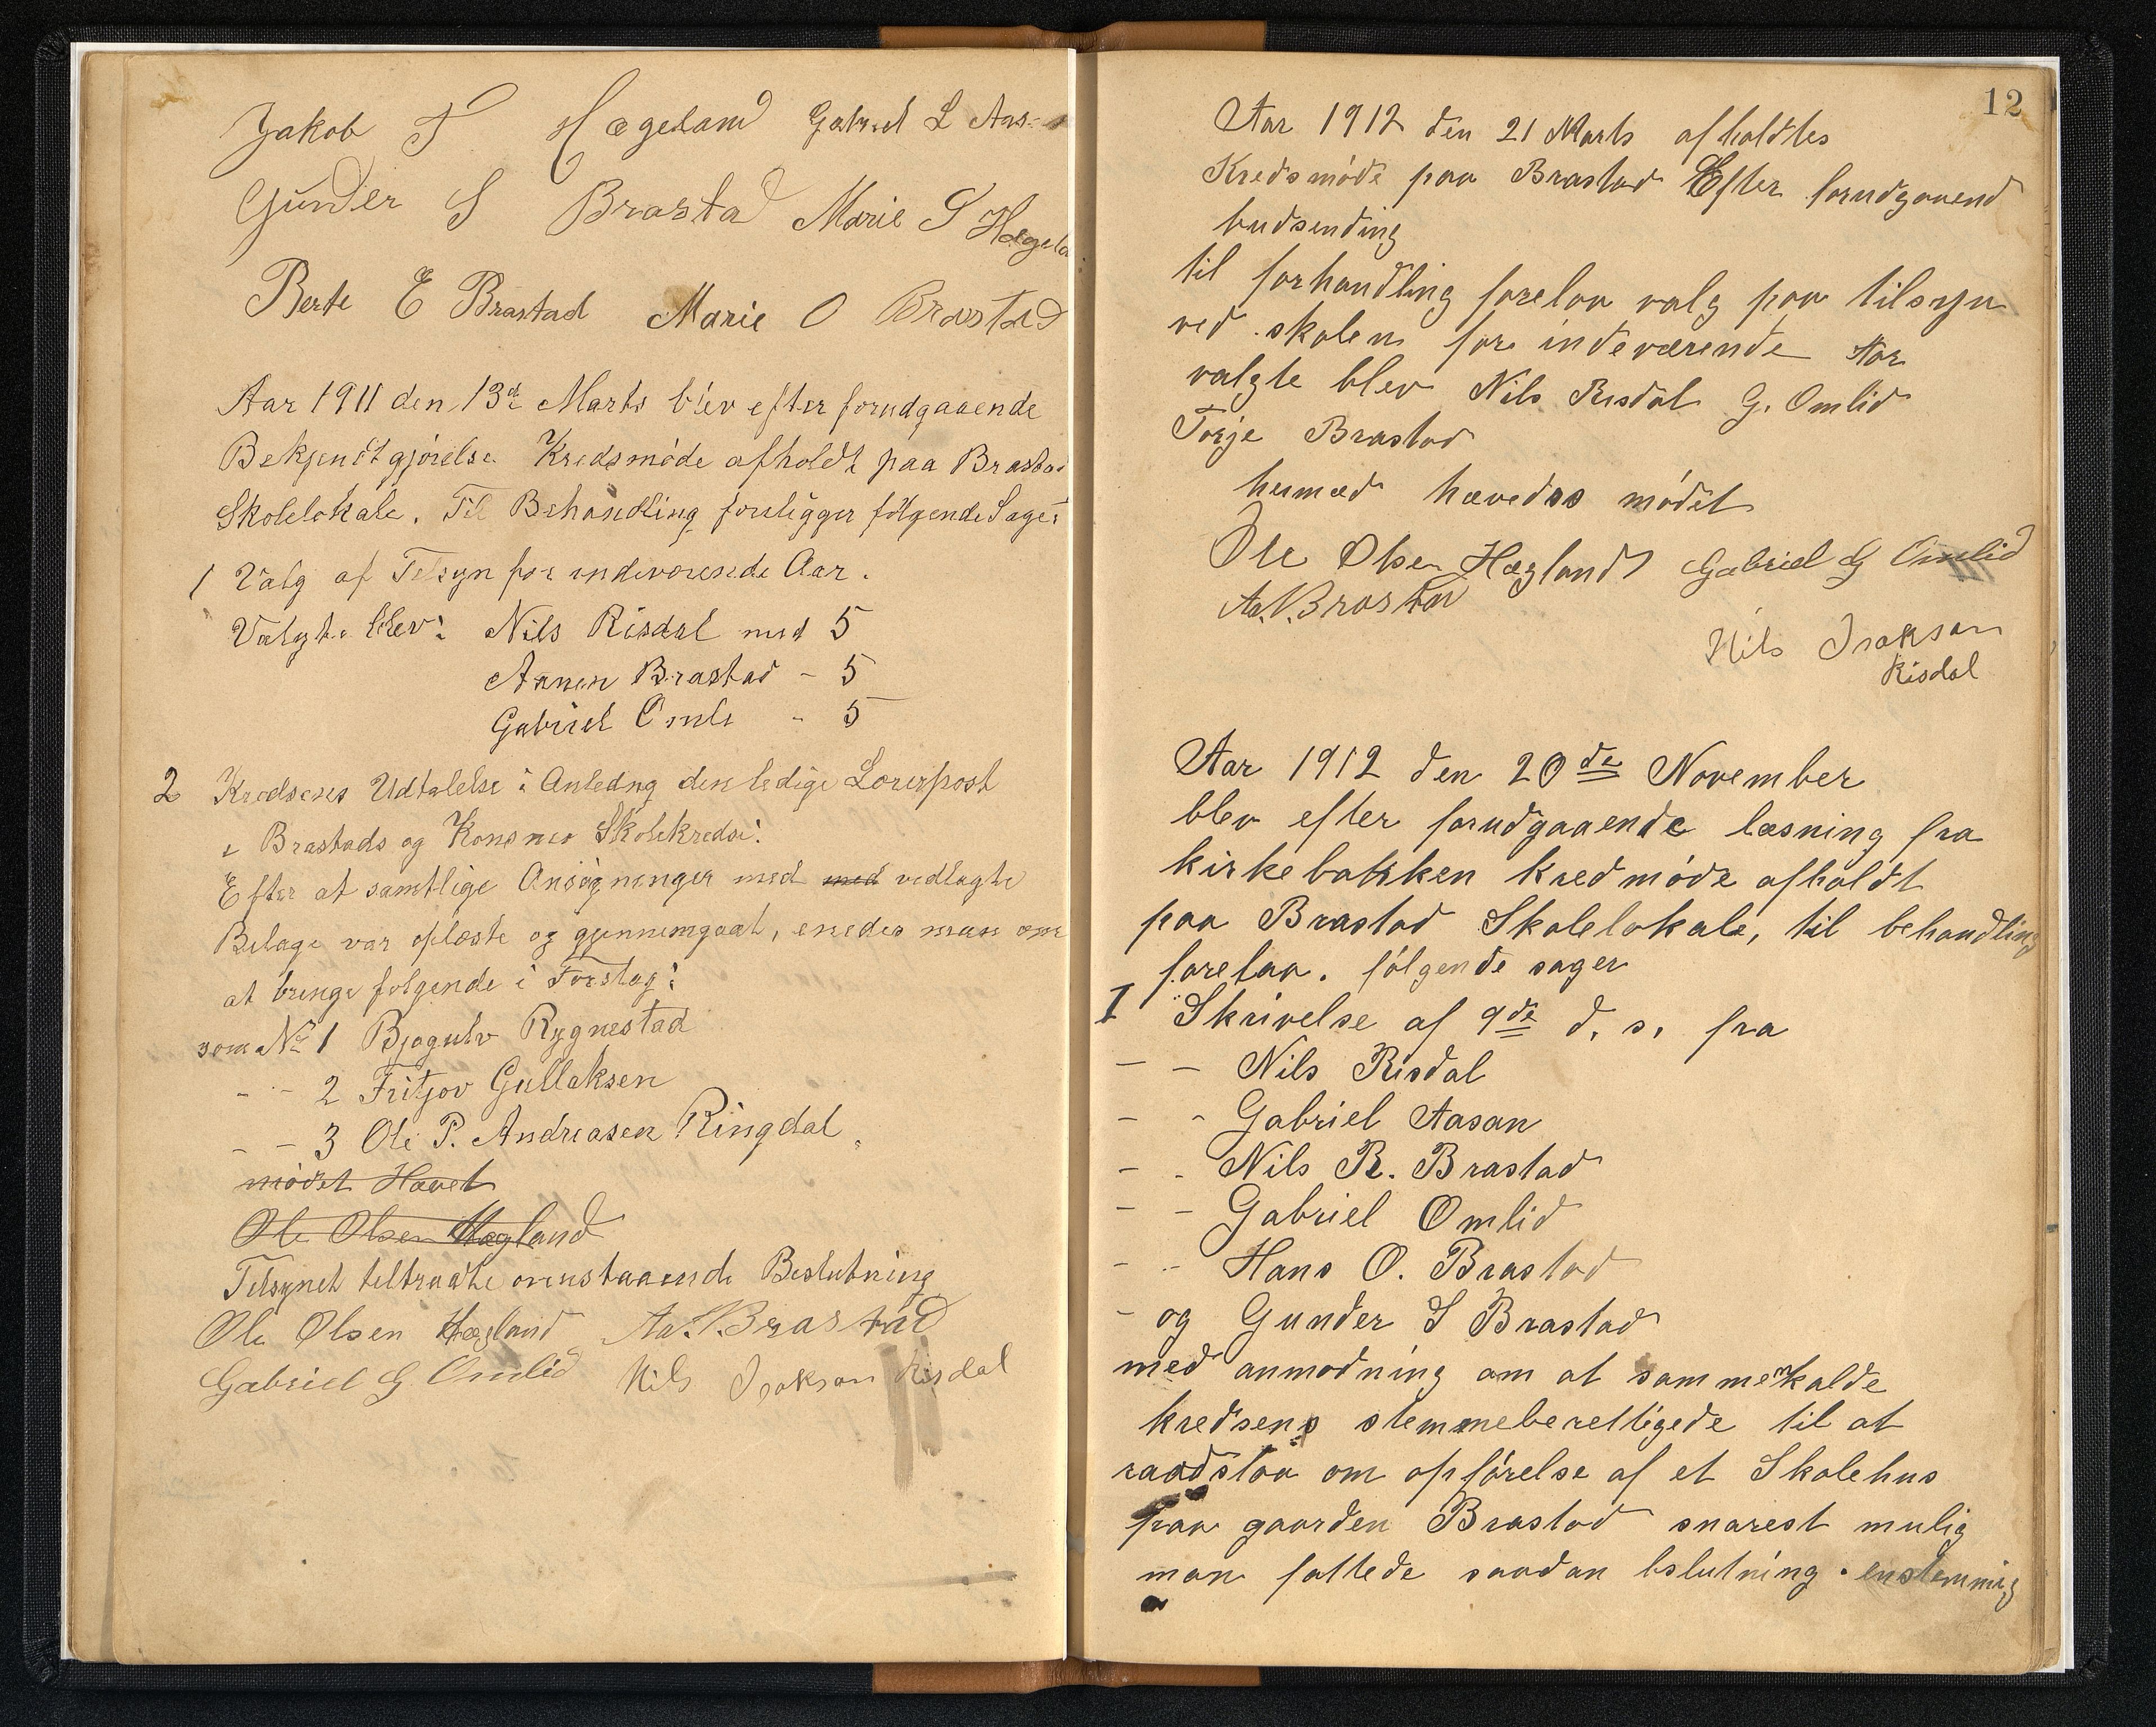 Jakob T Hægeland Gabriel L Aas
Gunder S Brastad Marie S Hægela
Berte E Brastad Marie O Brastad
Aar 1911 den 13de Marts blev efter forudgaaende
Bekjendtgjörelse Kredsmöde afholdt paa Brastad
Skolelokale. Til Behandling foreligger fölgende Sager
1 Valg af Tilsyn for indeværende Aar.
Valgte blev: Nils Risdal med 5
Aanen Brastad - 5
Gabriel Omli - 5
2 Kredsenes Udtalelse i Anledng den ledige Lærerpost
i Brastads og Konsmo Skolekredse:
Efter at samtlige Ansögninger med med vedlagte
Bilage var oplæste og gjennemgaat, enedes man om
at bringe folgende i Forslag:
som No 1 Bjogulv Rygnestad
- - 2 Fritjov Gullaksen
- - 3 Ole P. Andreasen Ringdal.
mödet Hævet
Ole Olsen Hægland
Tilsynet tiltraadte ovenstaaende Beslutning
Ole Olsen Hægland Aa. S. Brastad
Gabriel G Omlid Nils Isakson Risdal
12
Aar 1912 den 21 Marts afholdtes
Kredsmöde paa Brastad Efter forudgaaend
budsending
til forhandling forelaa valg paa tilsyn
ved skolen for indeværende Aar
valgte blev Nils Risdal G. Omlid
Torje Brastad
hermed hævedes mödet
Ole Olsen Hægland Gabriel G Omlid
Aa. S. Brastad
Nils Isakson
Risdal
Aar 1912 den 20de November
blev efter forudgaaende læsning fra
kirkebakken kredmöde afholdt
paa Brastad Skolelokale, til behandling
forelaa. fölgende sager
I Skrivelse af 9de d. s. fra
- - Nils Risdal
- - Gabriel Aasan
- - Nils R. Brastad
- - Gabriel Omlid
- - Hans O. Brastad
- og Gunder S Brastad
med anmodning om at sammenkalde
kredsens stemmeberettigede til at
raadslaa om opförelse af et Skolehus
paa gaarden Brastad snarest mulig
man fattede saadan bslutning. enstemmig